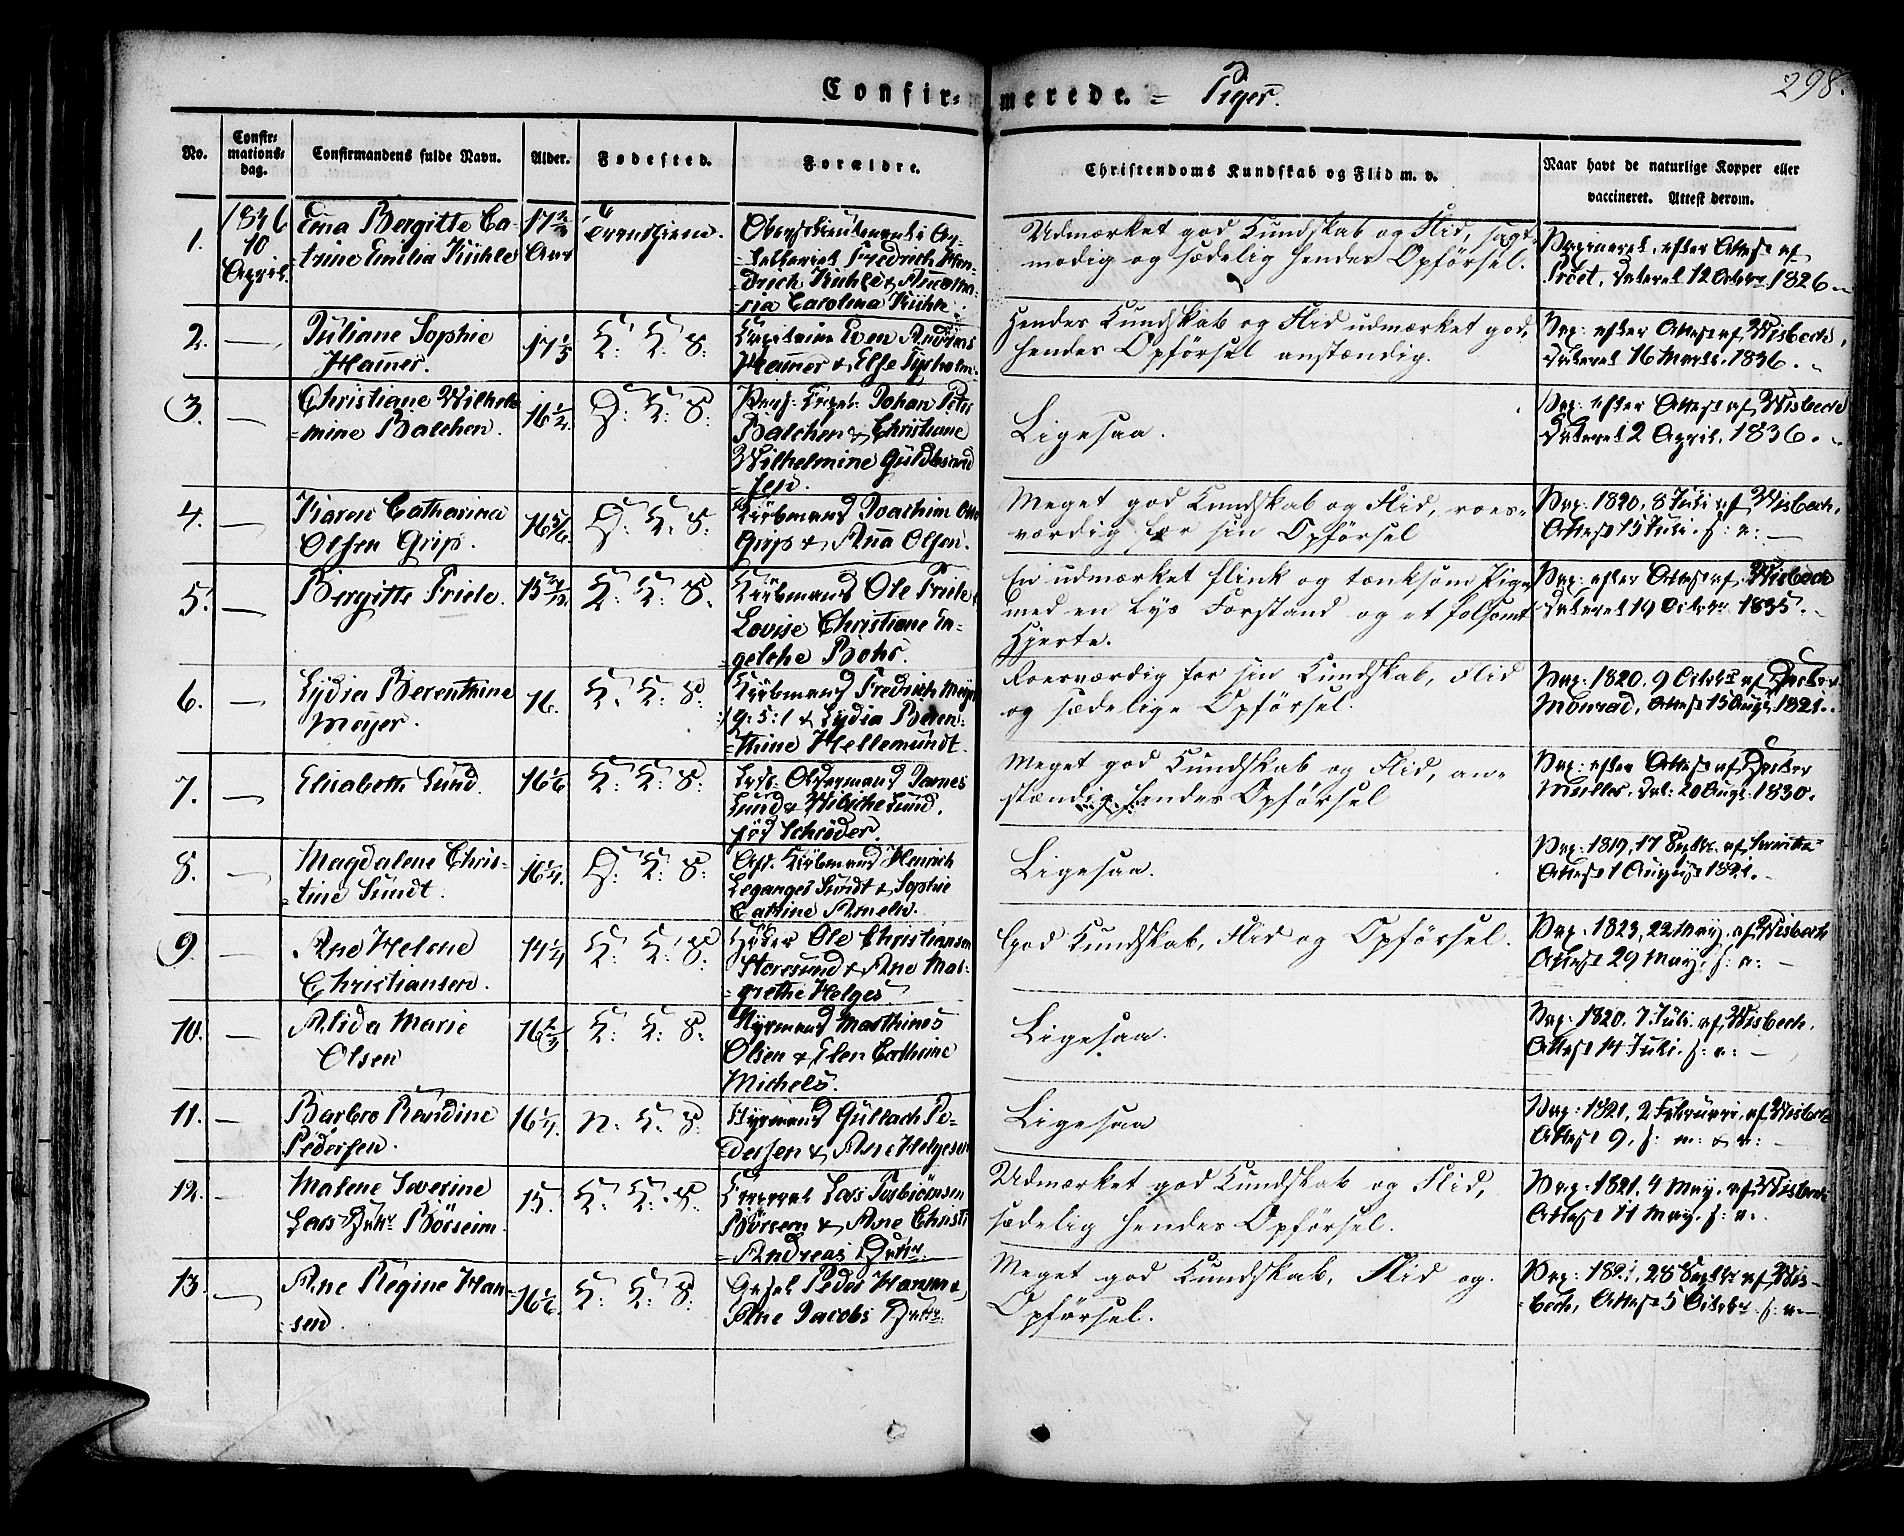 298.
Confirmerede. = Piger.
No.
Confir-
mations-
dag.
Confirmandens fulde Navn.
Alder.
Fødested.
Forældre.
Christendoms Kundskab og Flid m. v.
Naar havt de naturlige Kopper eller
vaccineret. Attest derom.
1.
1836
10
April.
Ema Bergitte Ca-
trine Emilia Kühle
Aar
Trondhjem.
Fredrich Hen-
drich Kühle & Anna Ma-
ria Carolina Kühle.
Udmærket god Kundskab og Flid, sagt-
modig og sædelig hendes Opførsel.
Vaxineret, efter Attest af
dateret 12 October 1826.
2.
Juliane Sophie
Ham̄er.
17 1/3
K. K. S.
Capitaine Even
Ham̄er & Else
Hendes Kundskab og Flid udmærket god,
hendes Opførsel anstændig.
Vax: efter Attest af Wisbech,
dateret 16 Marts. 1836.
3.
Christiane Wilhel-
mine Balchen.
16 1/2
D: K: S:
Johan Peter
Balchen & Christiane
Wilhelmine Guldbrand-
sen.
Ligesaa.
Vax: efter Attest af Wisbech
dateret 2 April. 1836.
4.
Karen Catharina
Olsen Grip.
16 5/6
D: K. S.
Kjøbmand Joachim
Grip & Ana Olsen.
Meget god Kundskab og Flid, roes-
værdig for sin Opførsel
Vax. 1820. 8 Juli af Wisbech,
Attest 15 Juli. s: a:
5.
Bergitte Friele.
K: K. S.
Kjøbmand Ole Friele &
Lovise Christiane En-
gelche Rohr.
En udmærket flink og tænksom Pige
med en lys Forstand og et følsomt
Hjerte.
Vax: efter Attest af Wisbech
dateret 19 October 1835.
6.
Lydia Berenthine
Meyer.
16.
K. K. S.
Kjøbmand Fredrich Meyer
& Lydia Beren-
thine Hellemundt.
Roesværdig for sin Kundskab, Flid
og sædelige Opførsel.
Vax. 1820. 9 October af Doctor
Monrad, Attest 15 Augt. 1821.
7.
Elisabeth Lund.
16 1/6
K: K: S:
Oldermand James
Lund & Wibiche Lund.
fød Schrøder.
Meget god Kundskab og Flid, an-
stændig hendes Opførsel
Vax: efter Attest af Doctor
Müller. dat: 20 Augt. 1830.
8.
Magdalene Chris-
tine Sundt.
16 1/4.
D: K: S:
Kjøbmand Henrich
Leganger Sundt & Sophie
Catrine Ameln.
Ligesaa.
Vax: 1819, 17 Septbr. af
Attest 1 August 1821.
9.
Ane Helene
Christiansen.
14 1/4
K: K. S.
Ole Christiansen
Storesund & Ane Mar-
grethe Helges
God Kundskab, Flid og Opførsel.
Vax: 1823, 22 May. af Wisbech
Attest 29 May. s: a:
10.
Alida Marie
Olsen
16 2/3
K: K: S:
Styrmand Marthinus
Olsen & Elen Cathrine
Michels.
Ligesaa.
Vax: 1820. 7 Juli. af Wisbech,
Attest 14 Juli. s: a:
11.
Barbro Randine
Pedersen.
16 1/4.
N: K: S:
Styrmand Gullach Pe-
dersen & Ane Helgesen
Ligesaa
Vax: 1821, 2 Februari, af Wisbech
Attest 9, s: m: & a:
12.
Malene Severine
Lars Dattr Børsem.
15.
K: K. S.
Lars Torbiørnsen
Børsem & Ane Christi
Andreas Dattr.
Udmærket god Kundskab og Flid,
sædelig hendes Opførsel.
Vax: 1821. 4 May. af Wisbech
Attest 11 May. s: a:
13.
Ane Regine Han-
sen.
16 1/6.
K: K: S:
Peder Hansen &
Ane Jacobs Dattr.
Meget god Kundskab, Flid og
Opførsel.
Vax: 1821, 28 Septbr af Wis-
bech, Attest 5 October s: a: